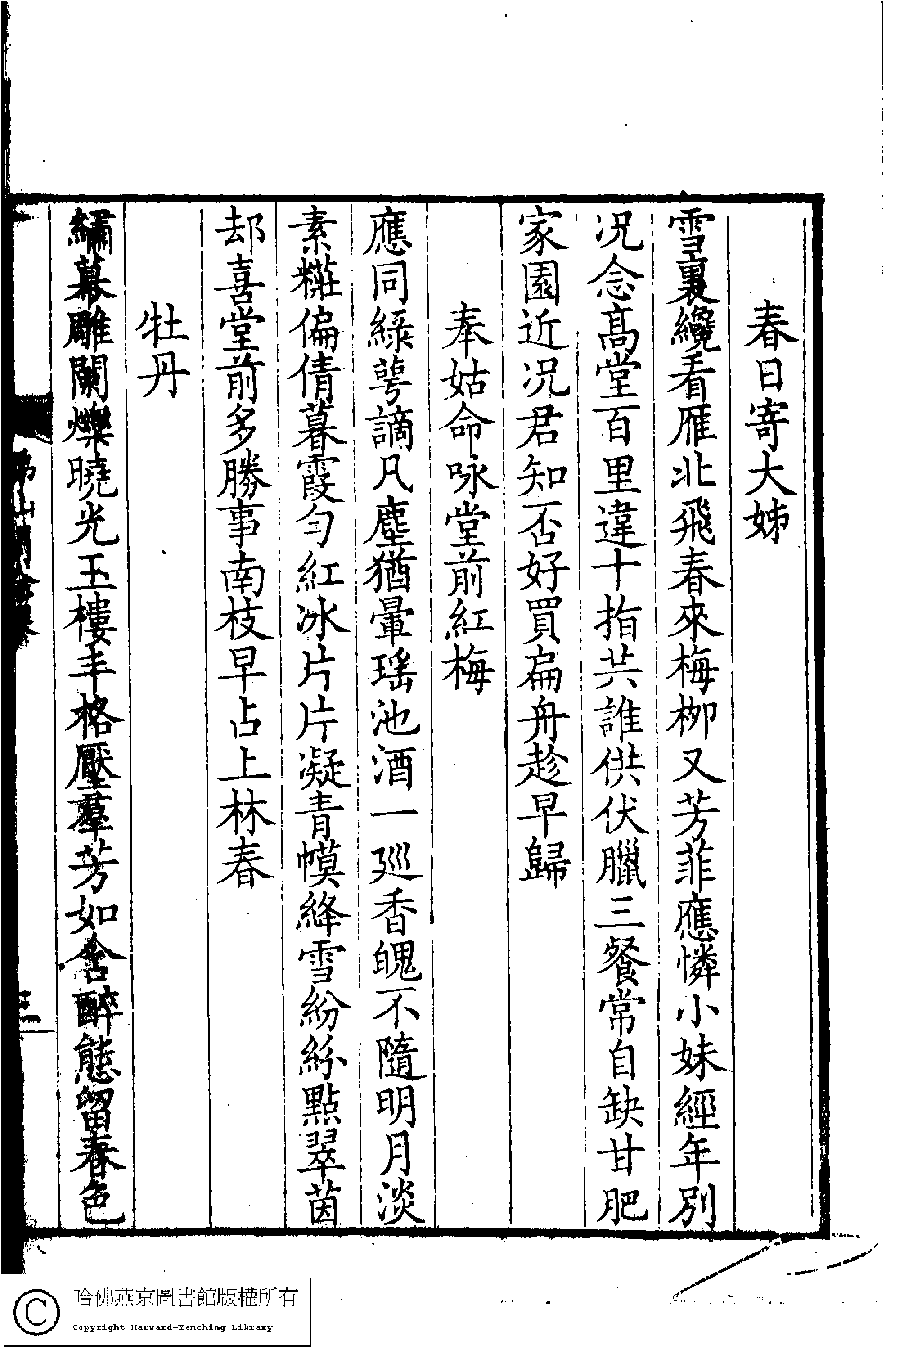 春日寄大姊
雪裏纔看雁北飛春來梅柳又芳菲應憐小妹經年別
况念高堂百里違十指共誰供伏臘三餐常自缺甘肥
家園近况君知否好買扁舟趁早歸
奉姑命咏堂前紅梅
應同綠萼謫凡塵猶暈瑤池酒一廵香魄不隨明月淡
素糚偏倩暮霞勻紅冰片片凝青幙絳雪紛紛點翠茵
却喜堂前多勝事南枝早占上林春
牡丹
繡幕雕闌爍曉光玉樓丰格壓羣芳如含醉態留春色
三
哈佛燕京圖書館版權所有
Copyright Harvard-Yenching Library